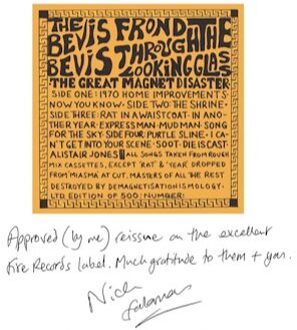 THE BEVIS FROND
BEVIS THROUGH THE
LOOKING GLASS
THE GREAT MAGNET DISASTER
SIDE ONE: 1970 HOME IMPROVEMENT
NOW YOU KNOW · SIDE TWO: THE SHRINE ·
SIDE THREE: RAT IN A WAISTCOAT · IN ANO-
THER YEAR · EXPRESSMAN · MUDMAN · SONG
FOR THE SKY · SIDE FOUR: PURTLE SLINE · I CA-
N'T GET INTO YOUR SCENE · SOOT · DIE IS CAST ·
ALISTAIR JONES ALL SONGS TAKEN FROM ROUGH
MIX CASSETTES, EXCEPT 'RAT' & 'YEAR' DROPPED
FROM MIASMA AT CUT. MASTERS OF ALL THE REST
DESTROYED BY DEMAGNETISATIONISMOLOGY·
LTD EDITION OF 500 NUMBER:
Approved (by me) reissue on the excellent
Fire Records label. Much gratitude to them + you.
Nick
Saloman